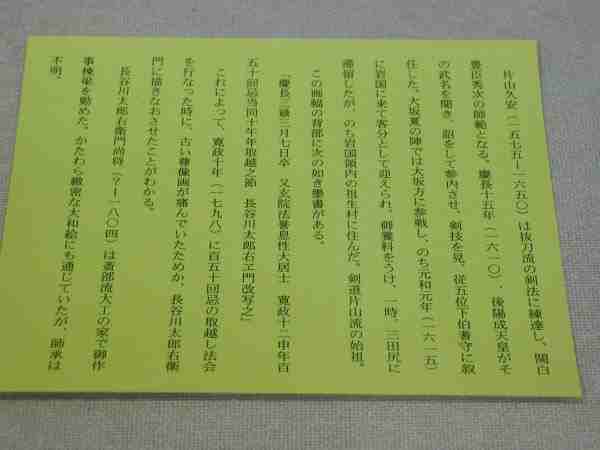 片山久安（一五七五－一六五〇）は抜刀流の剣法に練達し、関白
豊臣秀次の師範となる。慶長十五年（一六一〇）、後陽成天皇がそ
の武名を聞き、詔をして参内させ、剣技を見、従五位下伯耆守に叙
任した。大坂夏の陣では大坂方に参戦し、のち元和元年（一六一五）
に岩国に来て客分として迎えられ、御養料をうけ、一時、三田尻に
滞留したが、のち岩国領内の祖生村に住んだ。剣道片山流の始祖。
この画幅の背部に次の如き墨書がある。
「慶長三 三月七日卒　又玄院法 息性大居士　寛政十二申年百
五十回忌当同十年年取越之節　長谷川太郎右ヱ門改写之」
これによって、寛政十年（一七九八）に百五十回忌の取越し法会
を行なった時に、古い尊像画が痛んでいたためか、長谷川太郎右衛
門に描きなおさせたことがわかる。
長谷川太郎右衛門尚将（？－一八〇四）は斎部流大工の家で御作
事棟梁を勤めた。かたわら緻密な大和絵にも通じていたが、師承は
不明。